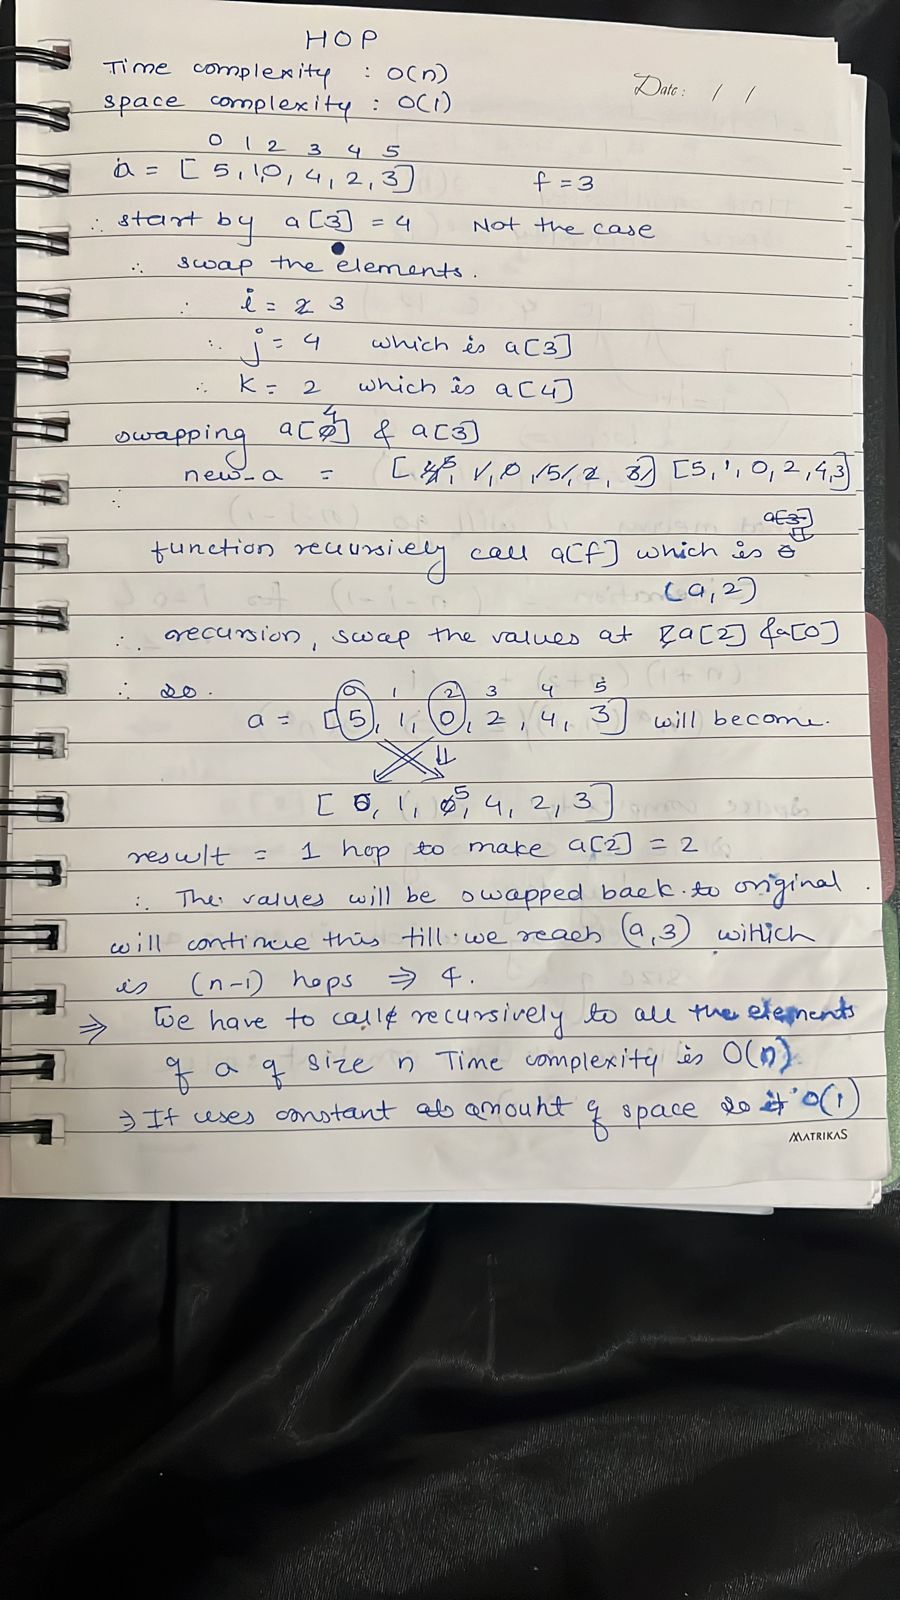 HOP
Time complexity : O(n)
Date: / /
space complexity : O(1)
0 1 2 3 4 5
a = [ 5, 1, 0, 4, 2, 3 ] f = 3
∴ start by a[3] = 4 Not the case
∴ swap the elements.
∴ i = 2 3
∴ j = 4 which is a[3]
∴ K = 2 which is a[4]
4
swapping a[0] & a[3]
new_a = [ 5, 1, 0, 5, 2, 3 ] [5, 1, 0, 2, 4, 3]
∴
a[3]
function recursively call a[f] which is
(a, 2)
∴ recursion, swap the values at a[2] & a[0]
∴ so.
0 1 2 3 4 5
a = [ 5, 1, 0, 2, 4, 3 ] will become.
[ 0, 1, 5, 4, 2, 3 ]
result = 1 hop to make a[2] = 2
∴ The values will be swapped back to original.
will continue this till we reach (a, 3) which
is (n-1) hops ⇒ 4.
⇒ We have to call recursively to all the elements
of a of size n Time complexity is O(n)
⇒ It uses constant amount of space so it O(1)
MATRIKAS